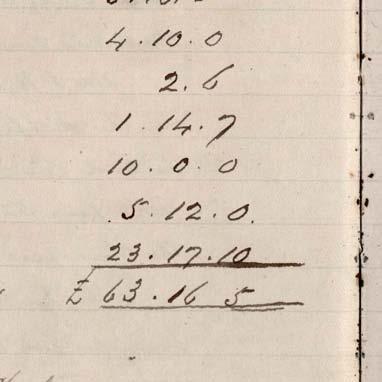 4.10.0
2.6
1.14.7
10.0.0
5.12.0.
23.17.10
£ 63.16 5